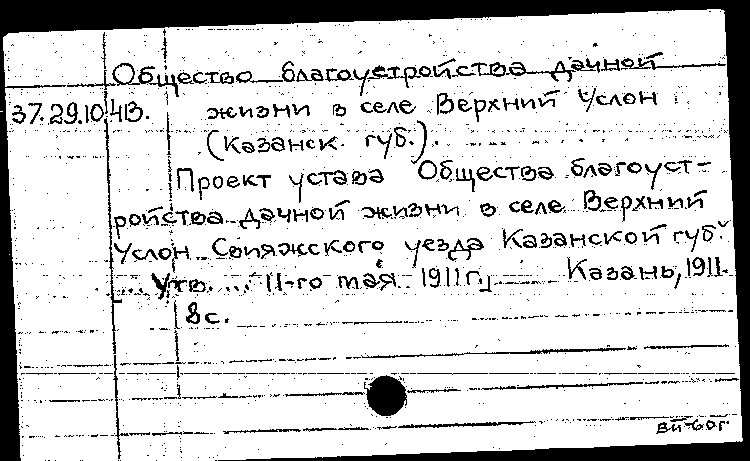 Общество благоустройства дачной
37.29.10.4В. жизни в селе Верхний Услон
(Казанск. губ.).
Проект устава Общества благоуст-
ройства дачной жизни в селе Верхний
Услон Свияжского уезда Казанской губ.
[... Утв. ... 11-го мая 1911 г.] Казань, 1911.
8с.
ВП-60г